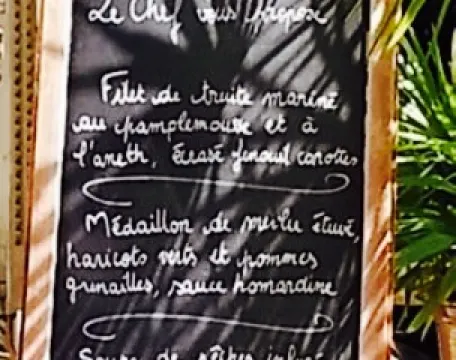 Le Chef vous propose
Filet de truite mariné
au pamplemousse et à
l'aneth, Écrasé fenouil carottes
Médaillon de merlu étuvé,
haricots verts et pommes
grenailles, sauce homardine
Soupe de pêches